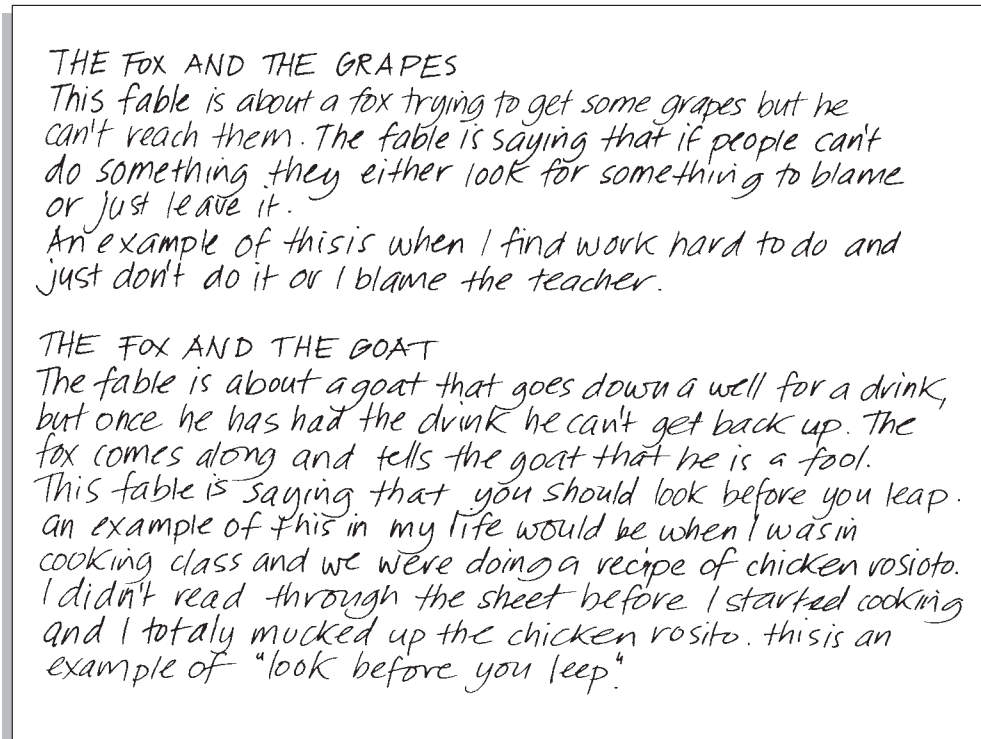 THE FOX AND THE GRAPES
This fable is about a fox trying to get some grapes but he
can't reach them. The fable is saying that if people can't
do something they either look for something to blame
or just leave it.
An example of this is when I find work hard to do and
just don't do it or I blame the teacher.
THE FOX AND THE GOAT
The fable is about a goat that goes down a well for a drink,
but once he has had the drink he can't get back up. The
fox comes along and tells the goat that he is a fool.
This fable is saying that you should look before you leap.
an example of this in my life would be when I was in
cooking class and we were doing a recipe of chicken rosioto.
I didn't read through the sheet before I started cooking
and I totaly mucked up the chicken rosito. this is an
example of "look before you leep".